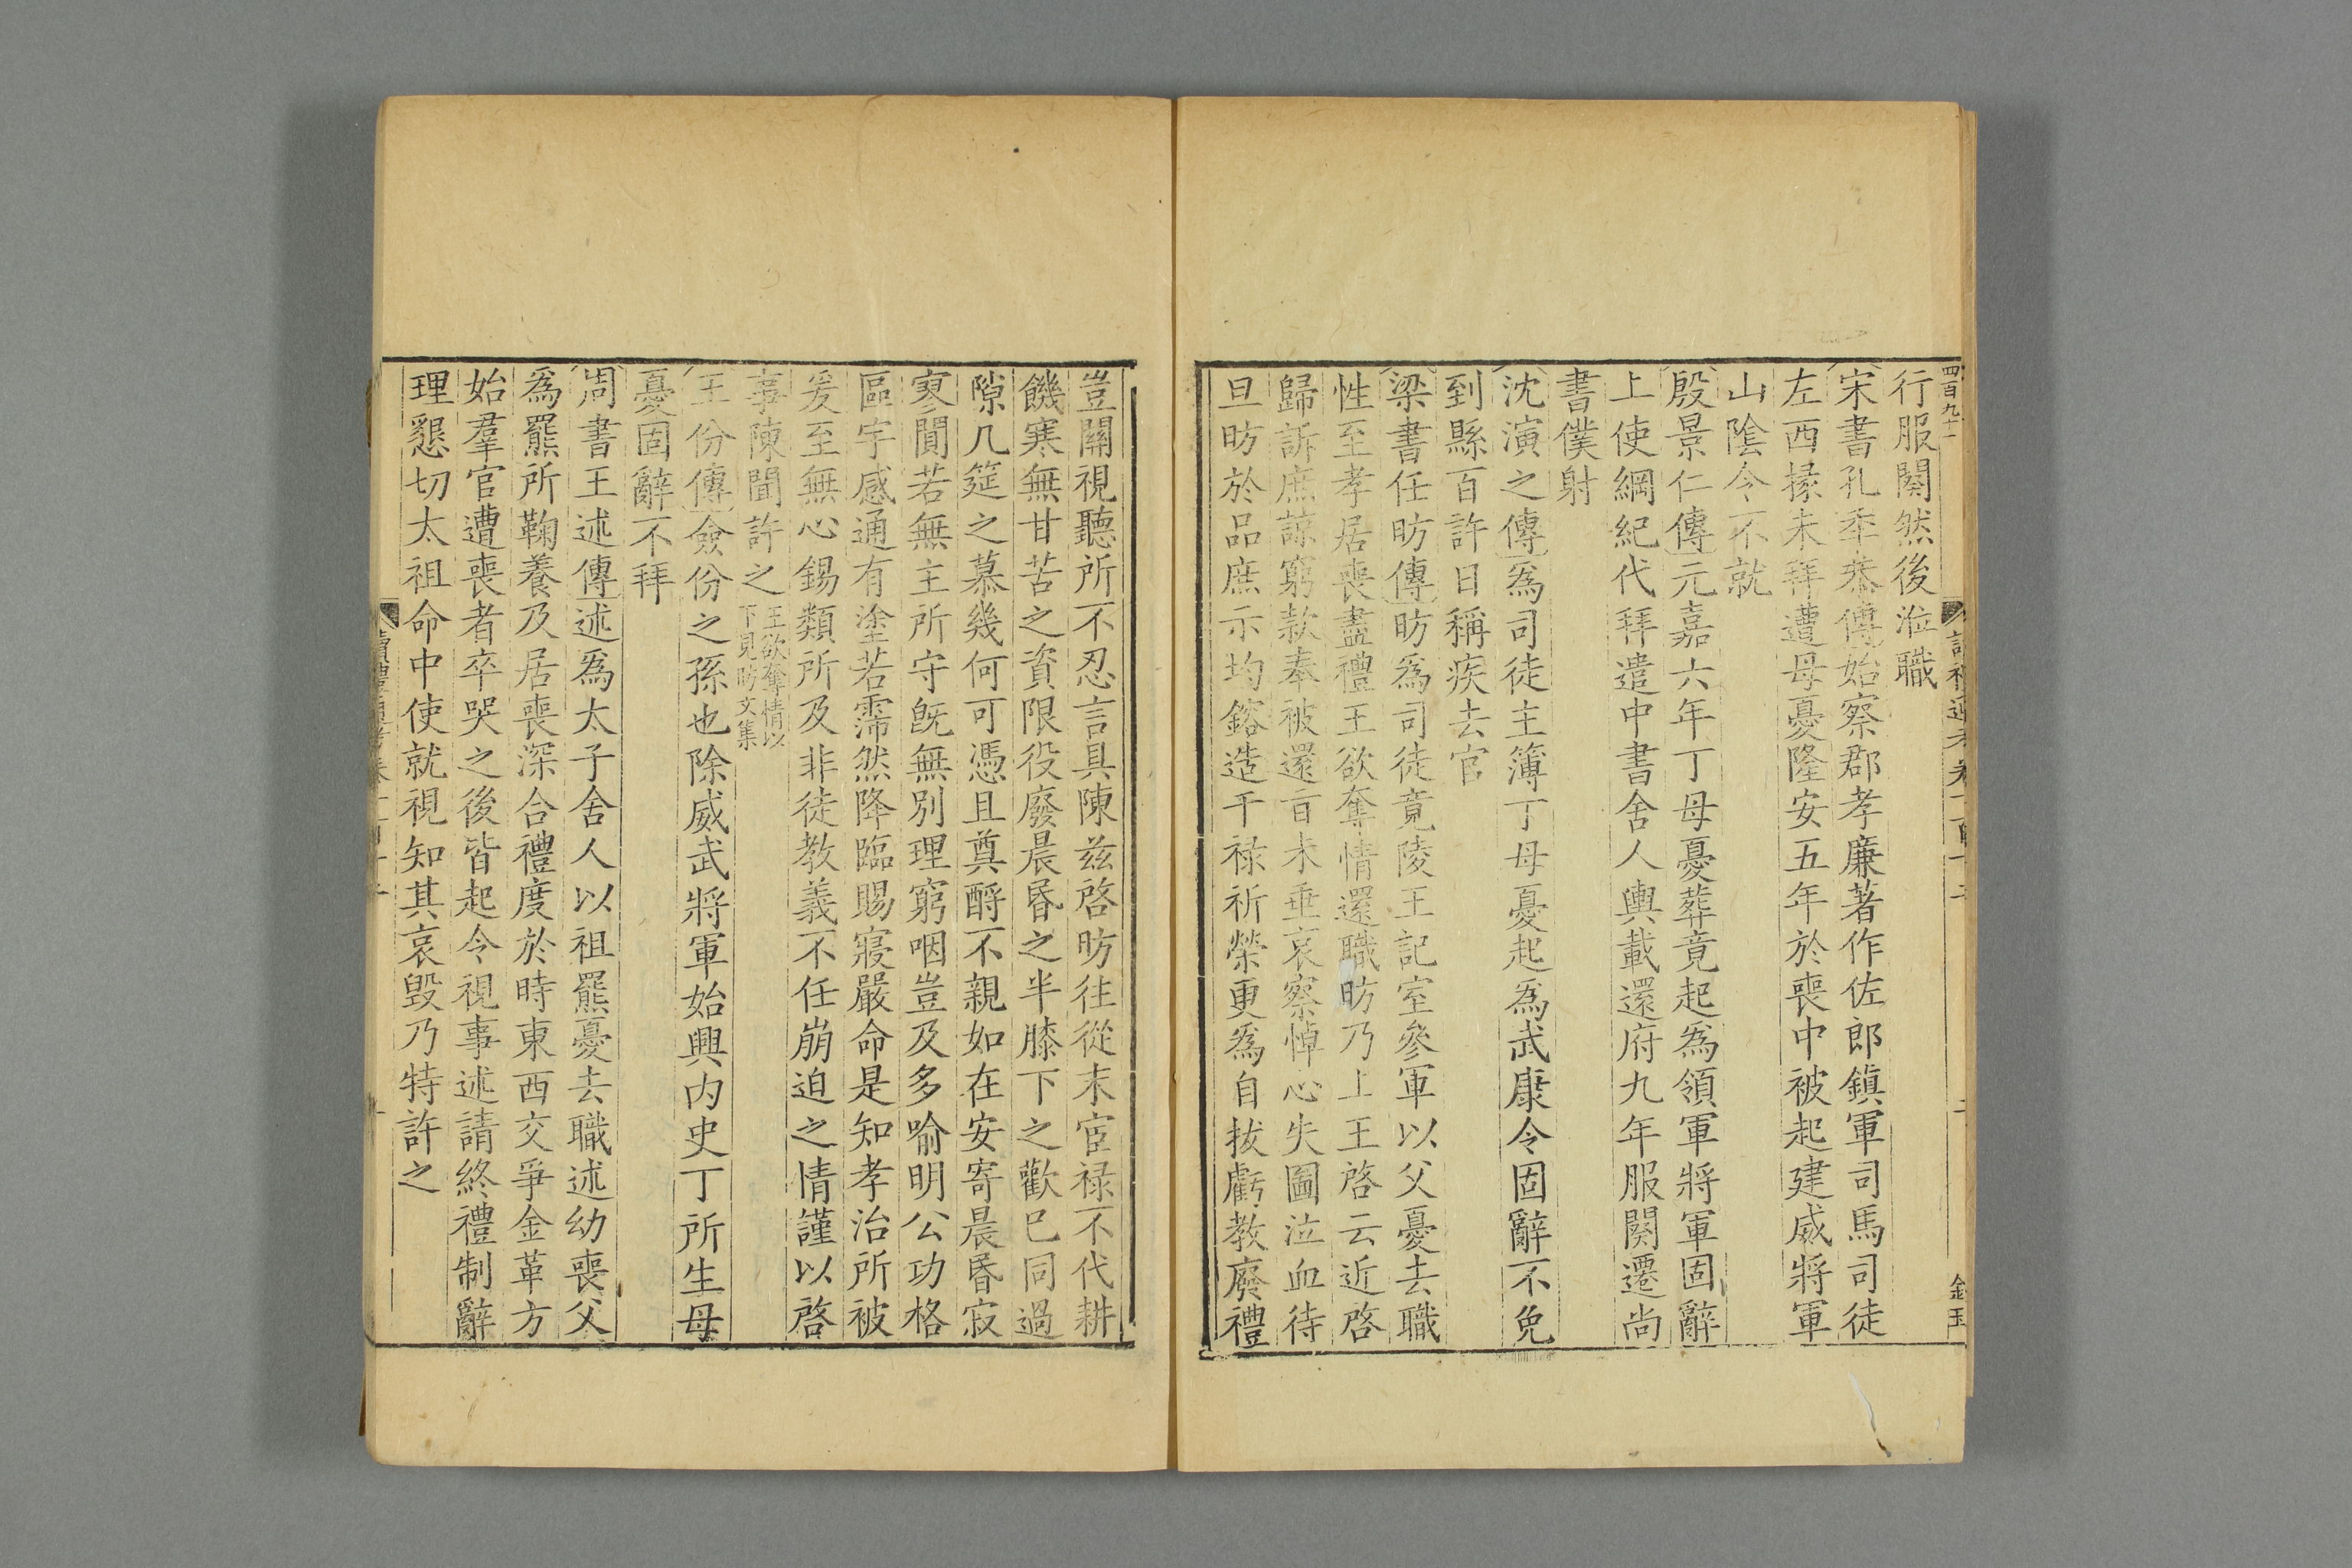 四百九十一
行服闋然後涖職
宋書孔季恭傳始察郡孝廉著作佐郎鎮軍司馬司徒
左西掾未拜遭母憂隆安五年於喪中被起建威將軍
山陰令不就
殷景仁傳元嘉六年丁母憂葬竟起爲領軍將軍固辭
上使綱紀代拜遣中書舍人輿載還府九年服闋遷尚
書僕射
沈演之傳爲司徒主簿丁母憂起爲武康令固辭不免
到縣百許日稱疾去官
梁書任昉傳昉爲司徒竟陵王記室參軍以父憂去職
性至孝居喪盡禮王欲奪情還職昉乃上王啓云近啓
歸訴庶諒窮款奉被還旨未垂哀察悼心失圖泣血待
旦昉於品庶示均鎔造干祿祈榮更爲自拔虧教廢禮
豈關視聽所不忍言具陳兹啓昉往從末宦祿不代耕
饑寒無甘苦之資限役廢晨昏之半膝下之歡已同過
隙几筵之慕幾何可憑且奠酹不親如在安寄晨昏寂
寥閴若無主所守旣無別理窮咽豈及多喻明公功格
區宇感通有塗若霈然降臨賜寢嚴命是知孝治所被
爰至無心錫類所及非徒教義不任崩迫之情謹以啓
事陳聞許之王欲奪情以
下見昉文集
王份傳僉份之孫也除威武將軍始興内史丁所生母
憂固辭不拜
周書王述傳述爲太子舍人以祖羆憂去職述幼喪父
爲羆所鞠養及居喪深合禮度於時東西交爭金革方
始羣官遭喪者卒哭之後皆起令視事述請終禮制辭
理懇切太祖命中使就視知其哀毁乃特許之